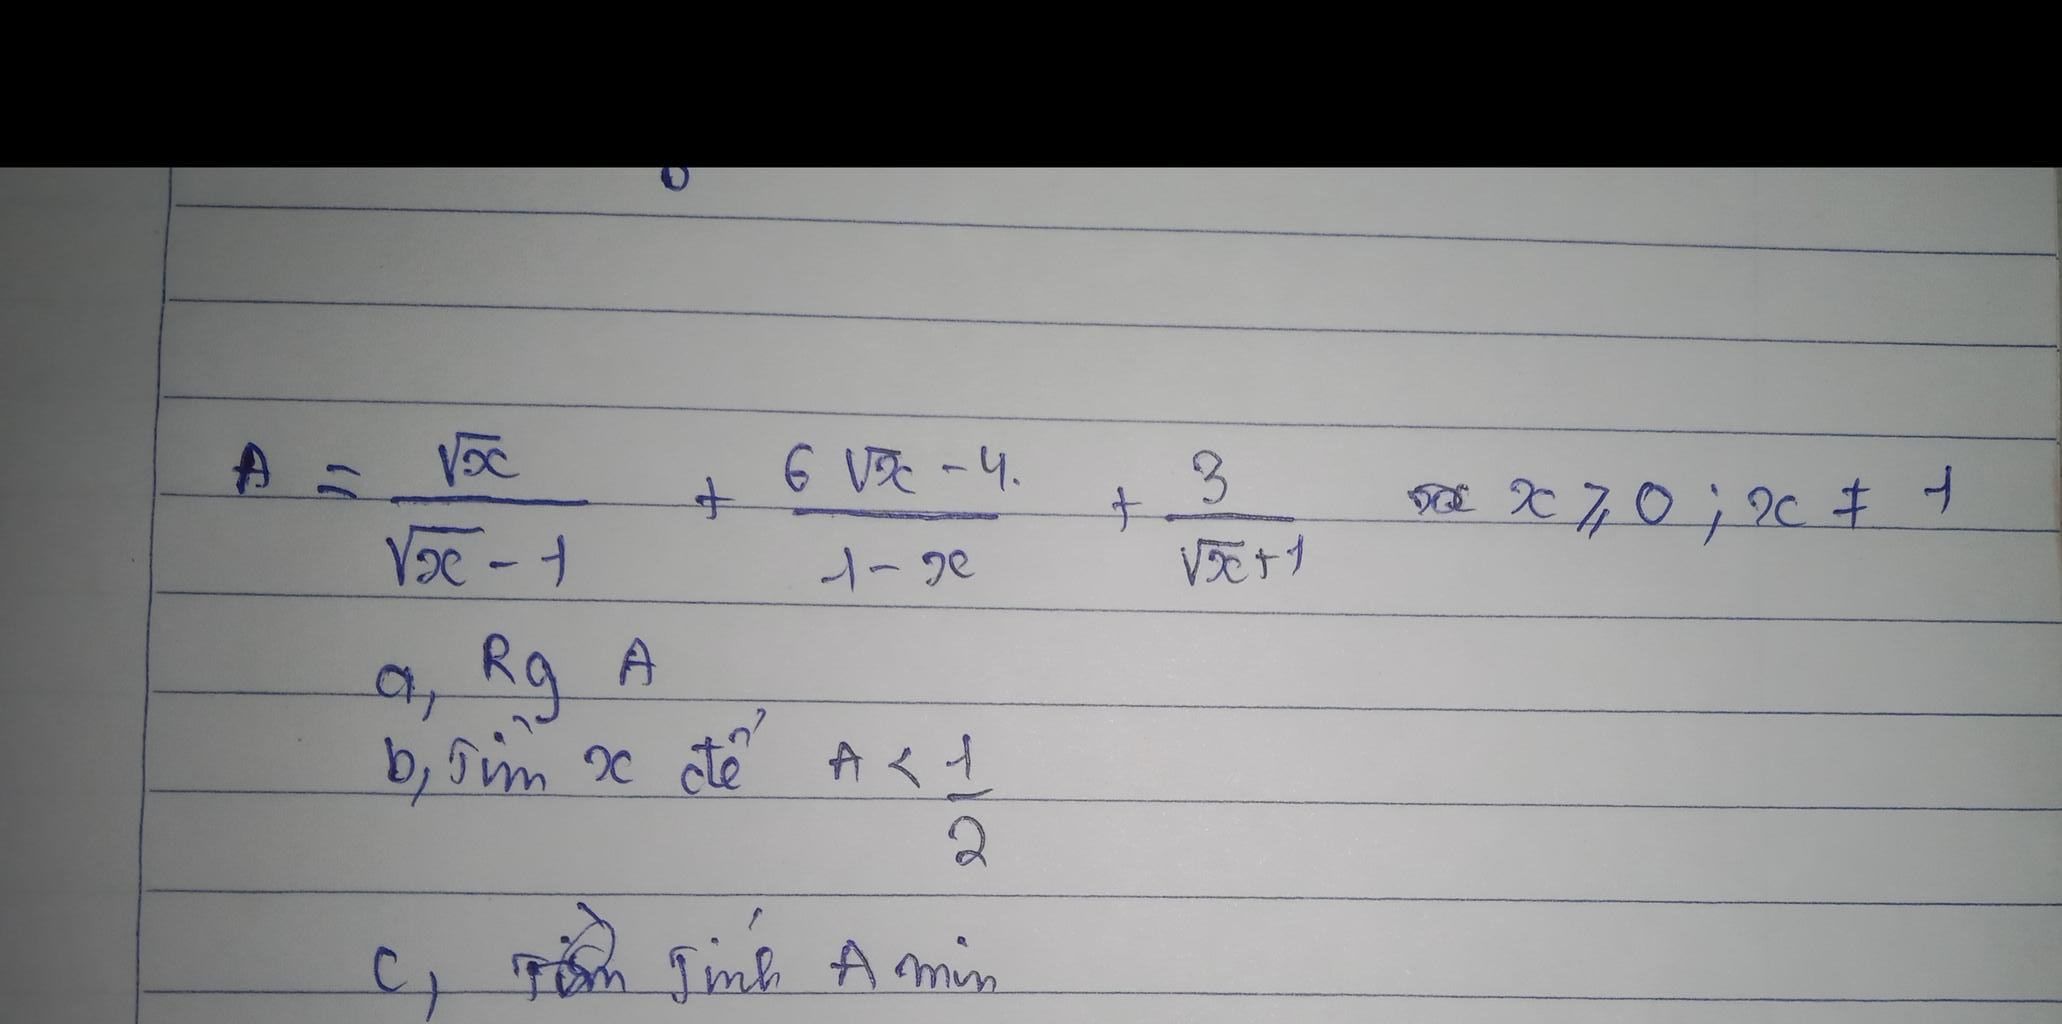 A = √x / (√x - 1) + (6√x - 4.) / (1 - x) + 3 / (√x + 1) x ⩾ 0 ; x ≠ 1
a, Rg A
b, Tìm x để A < 1/2
c, Tính A min